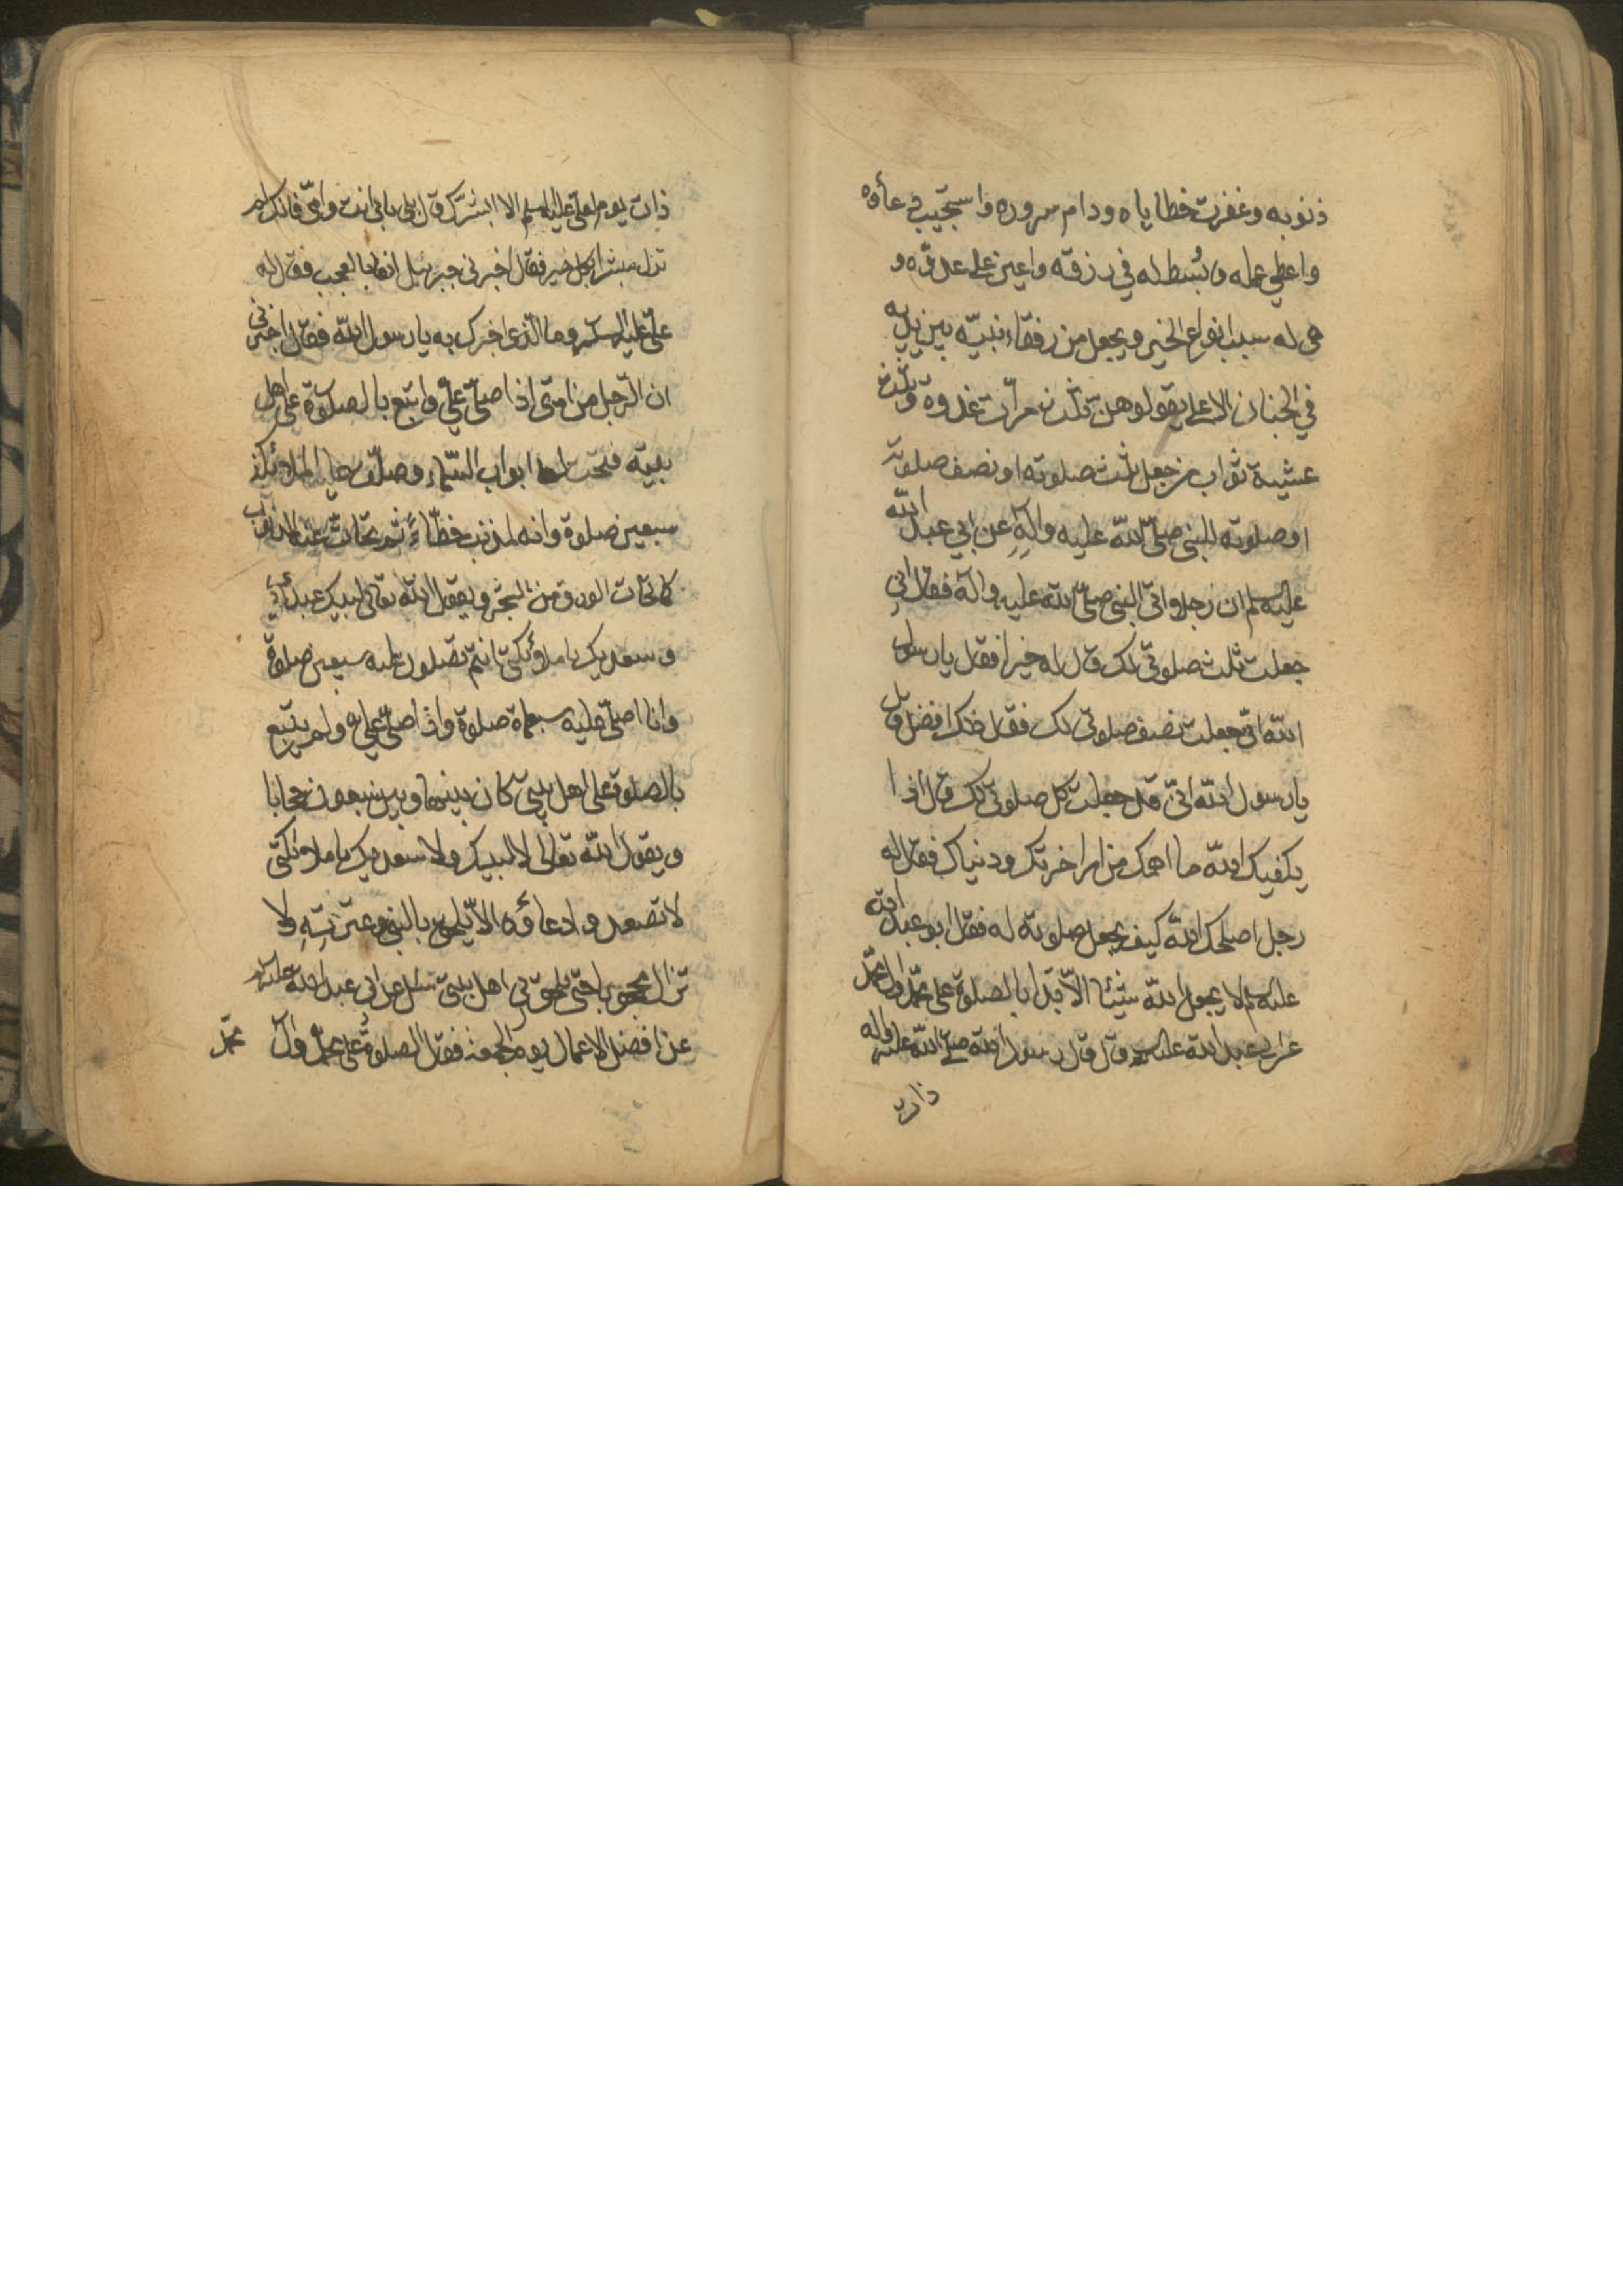 ذنوبه وغفرت خطاياه ودام سروره واستجيب دعاؤه
واعطي عمله وبسط له في رزقه واعين على عدوّه و
هي له سبب انواع الخير ويجعل من رفقاء نبيّه بين يديه
في الجنان الاعلى يقولوهن ثلث مرّات غدوة وثلث
عشية ثواب من جعل ثلث صلوته او نصف صلوته
او صلوته للنبي صلّى الله عليه وآلهِ عن ابي عبد الله
عليه سلم ان رجلا اتى النبي صلّى الله عليه وآله فقال اني
جعلت ثلث صلوتي لك قال له خيرا فقال يا رسول
الله انّي جعلت نصف صلوتي لك فقال ذلك افضل قال
يا رسول الله انّي قد جعلت كل صلوتي لك قال اذا
يكفيك الله ما اهمك من امر اخرتك ودنياك فقال له
رجل اصلحك الله كيف يجعل صلوته له فقال ابو عبد الله
عليه سلم لا يجعل الله شيئا الّا بدا بالصلوة على محمّد وال محمّد
عن ابي عبد الله عليه قال قال رسول الله صلى الله عليه واله
ذات
ذات يوم لعلي عليه سلم الا ابشرك قال بلى بابي انت وامّي فانك لم
تزل مبشرا بكل خير فقال اخبرني جبرئيل انفا بالعجب فقال له
عليّ عليه وما الّذي اخبرك به يا رسول الله فقال اخبرني
ان الرّجل من امتى اذا صلّى عليّ واتبع بالصلوة على اهل
بيته فتحت له ابواب السّماء وصلّت عليه الملائكة
سبعين صلوة وانه لمذنب خطّاءً ثم تحاتّ عنه الذنوب
كما تحات الورق من الشجر ويقول الله تعالى لبيك عبدي
وسعديك يا ملائكتي انتم تصلون عليه سبعين صلوة
وانا اصلّي عليه سبعماة صلوة واذا صلّى عليّ ولم يتبع
بالصلوة على اهل بيتي كان بينها وبين سبعون حجابا
ويقول الله تعالى لا لبيك ولا سعديك يا ملائكتي
لا تصعدوا دعاؤه الّا يلحق بالنبي وعترتهِ ولا
تزال محجوبا حتّى يلحق بي اهل بيتي سئل عن ابي عبد الله عليه
عن افضل الاعمال يوم الجمعة فقال الصلوة على محمّد وآل
محمّد